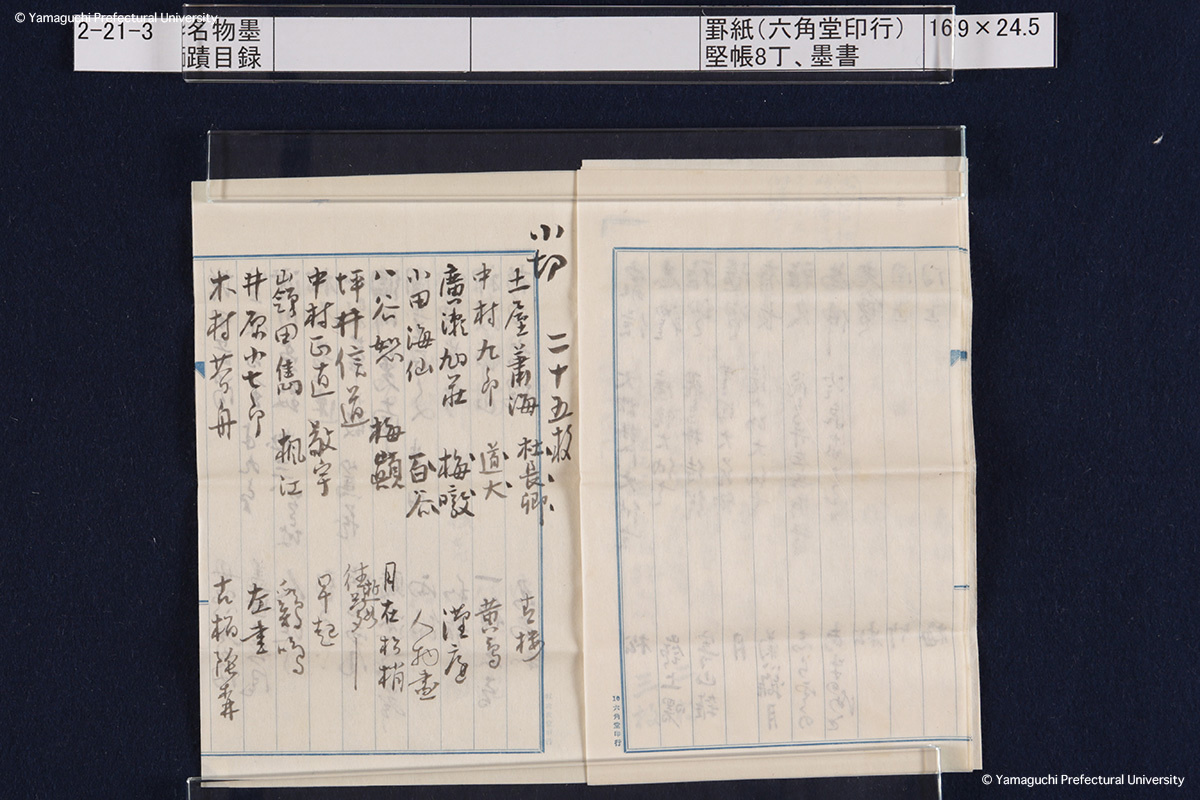 © Yamaguchi Prefectural University
2-21-3
名物墨
蹟目録
罫紙(六角堂印行)
竪帳8丁、墨書
16.9×24.5
小切 二十五枚
土屋蕭海 杜長卿 青楼
中村九郎 道太 黄鳥
廣瀬旭荘 梅墩
小田海仙 百谷 人物画
八谷 梅顛 月在松梢
坪井信道
中村正直 敬宇 早起
嶺田雋 楓江 鶏鳴
井原小七郎 左書
木村芥舟 古柏
六角堂印行
© Yamaguchi Prefectural University